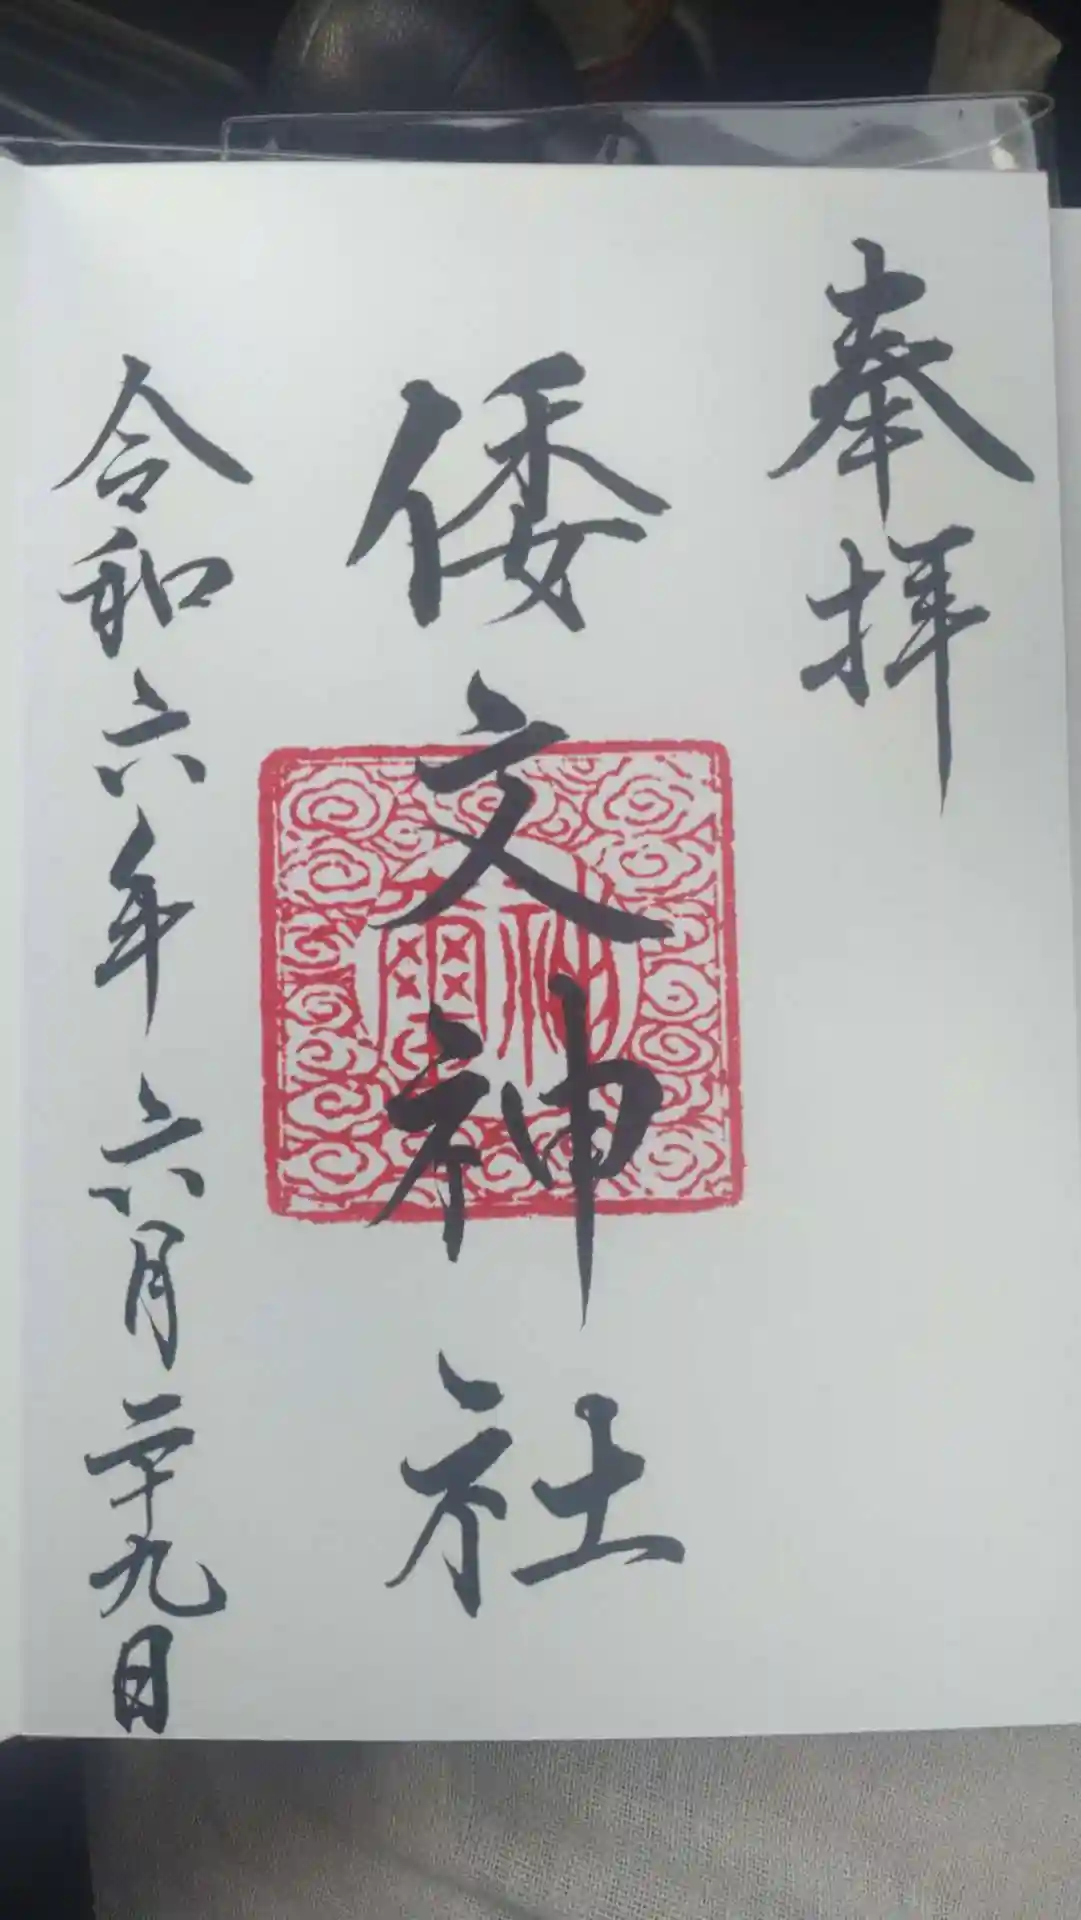 奉拝
倭文神社
神璽
令和六年六月二十九日